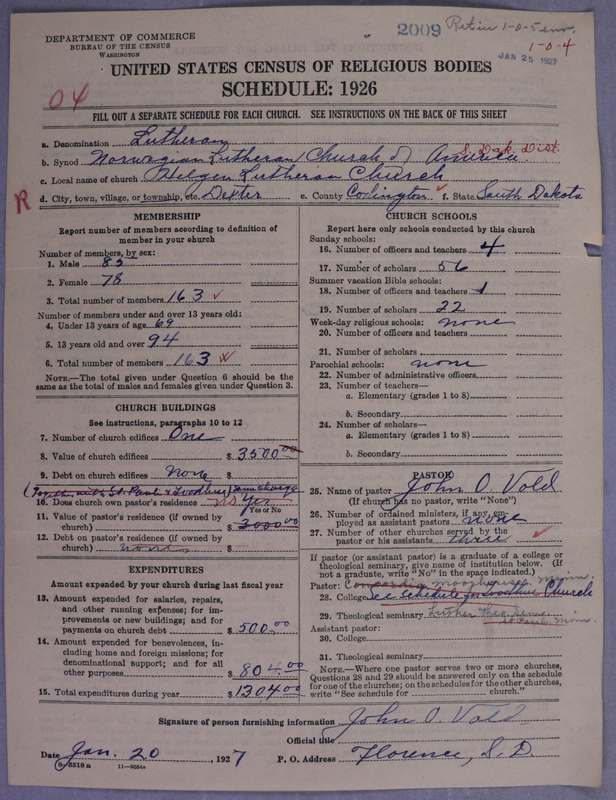 DEPARTMENT OF COMMERCE
BUREAU OF THE CENSUS
WASHINGTON
2009
Ret in 1-0-5 env.
1-0-4
JAN 25 1927
UNITED STATES CENSUS OF RELIGIOUS BODIES
SCHEDULE: 1926
04
FILL OUT A SEPARATE SCHEDULE FOR EACH CHURCH. SEE INSTRUCTIONS ON THE BACK OF THIS SHEET
a. Denomination Lutheran
S. Dak. Dist.
b. Synod Norwegian Lutheran Church of America
c. Local name of church Helgen Lutheran Church
R
d. City, town, village, or township, etc. Dexter e. County Codington ✓ f. State South Dakota
MEMBERSHIP
Report number of members according to definition of
member in your church
Number of members, by sex:
1. Male 85
2. Female 78
3. Total number of members 163 ✓
Number of members under and over 13 years old:
4. Under 13 years of age 69
5. 13 years old and over 94
6. Total number of members 163 ✓
NOTE.—The total given under Question 6 should be the
same as the total of males and females given under Question 3.
CHURCH BUILDINGS
See instructions, paragraphs 10 to 12
7. Number of church edifices One
8. Value of church edifices $ 3500.00
9. Debt on church edifices None $
(Together with St. Pauls & Goodhue) same charge
10. Does church own pastor's residence? no Yes
Yes or No
11. Value of pastor's residence (if owned by
church) $ 3000.00
12. Debt on pastor's residence (if owned by
church) none $
EXPENDITURES
Amount expended by your church during last fiscal year
13. Amount expended for salaries, repairs,
and other running expenses; for im-
provements or new buildings; and for
payments on church debt $ 500.00
14. Amount expended for benevolences, in-
cluding home and foreign missions; for
denominational support; and for all
other purposes $ 804.00
15. Total expenditures during year $ 1304.00
CHURCH SCHOOLS
Report here only schools conducted by this church
Sunday schools:
16. Number of officers and teachers 4
17. Number of scholars 56
Summer vacation Bible schools:
18. Number of officers and teachers 1
19. Number of scholars 22
Week-day religious schools: none
20. Number of officers and teachers
21. Number of scholars
Parochial schools: none
22. Number of administrative officers
23. Number of teachers—
a. Elementary (grades 1 to 8)
b. Secondary
24. Number of scholars—
a. Elementary (grades 1 to 8)
b. Secondary
PASTOR
25. Name of pastor John O. Vold
(If church has no pastor, write "None")
26. Number of ordained ministers, if any, em-
ployed as assistant pastors none
27. Number of other churches served by the
pastor or his assistants three ✓
If pastor (or assistant pastor) is a graduate of a college or
theological seminary, give name of institution below. (If
not a graduate, write "No" in the space indicated.)
Pastor: Concordia Moorhead, Minn.
28. College See Schedule for Goodhue Church
29. Theological seminary Luther Theo. Sem.
St. Paul, Minn.
Assistant pastor:
30. College
31. Theological seminary
NOTE.—Where one pastor serves two or more churches,
Questions 28 and 29 should be answered only on the schedule
for one of the churches; on the schedules for the other churches,
write "See schedule for church."
Signature of person furnishing information John O. Vold
Official title
Date Jan. 20, 1927 P. O. Address Florence, S. D.
8-5518 a